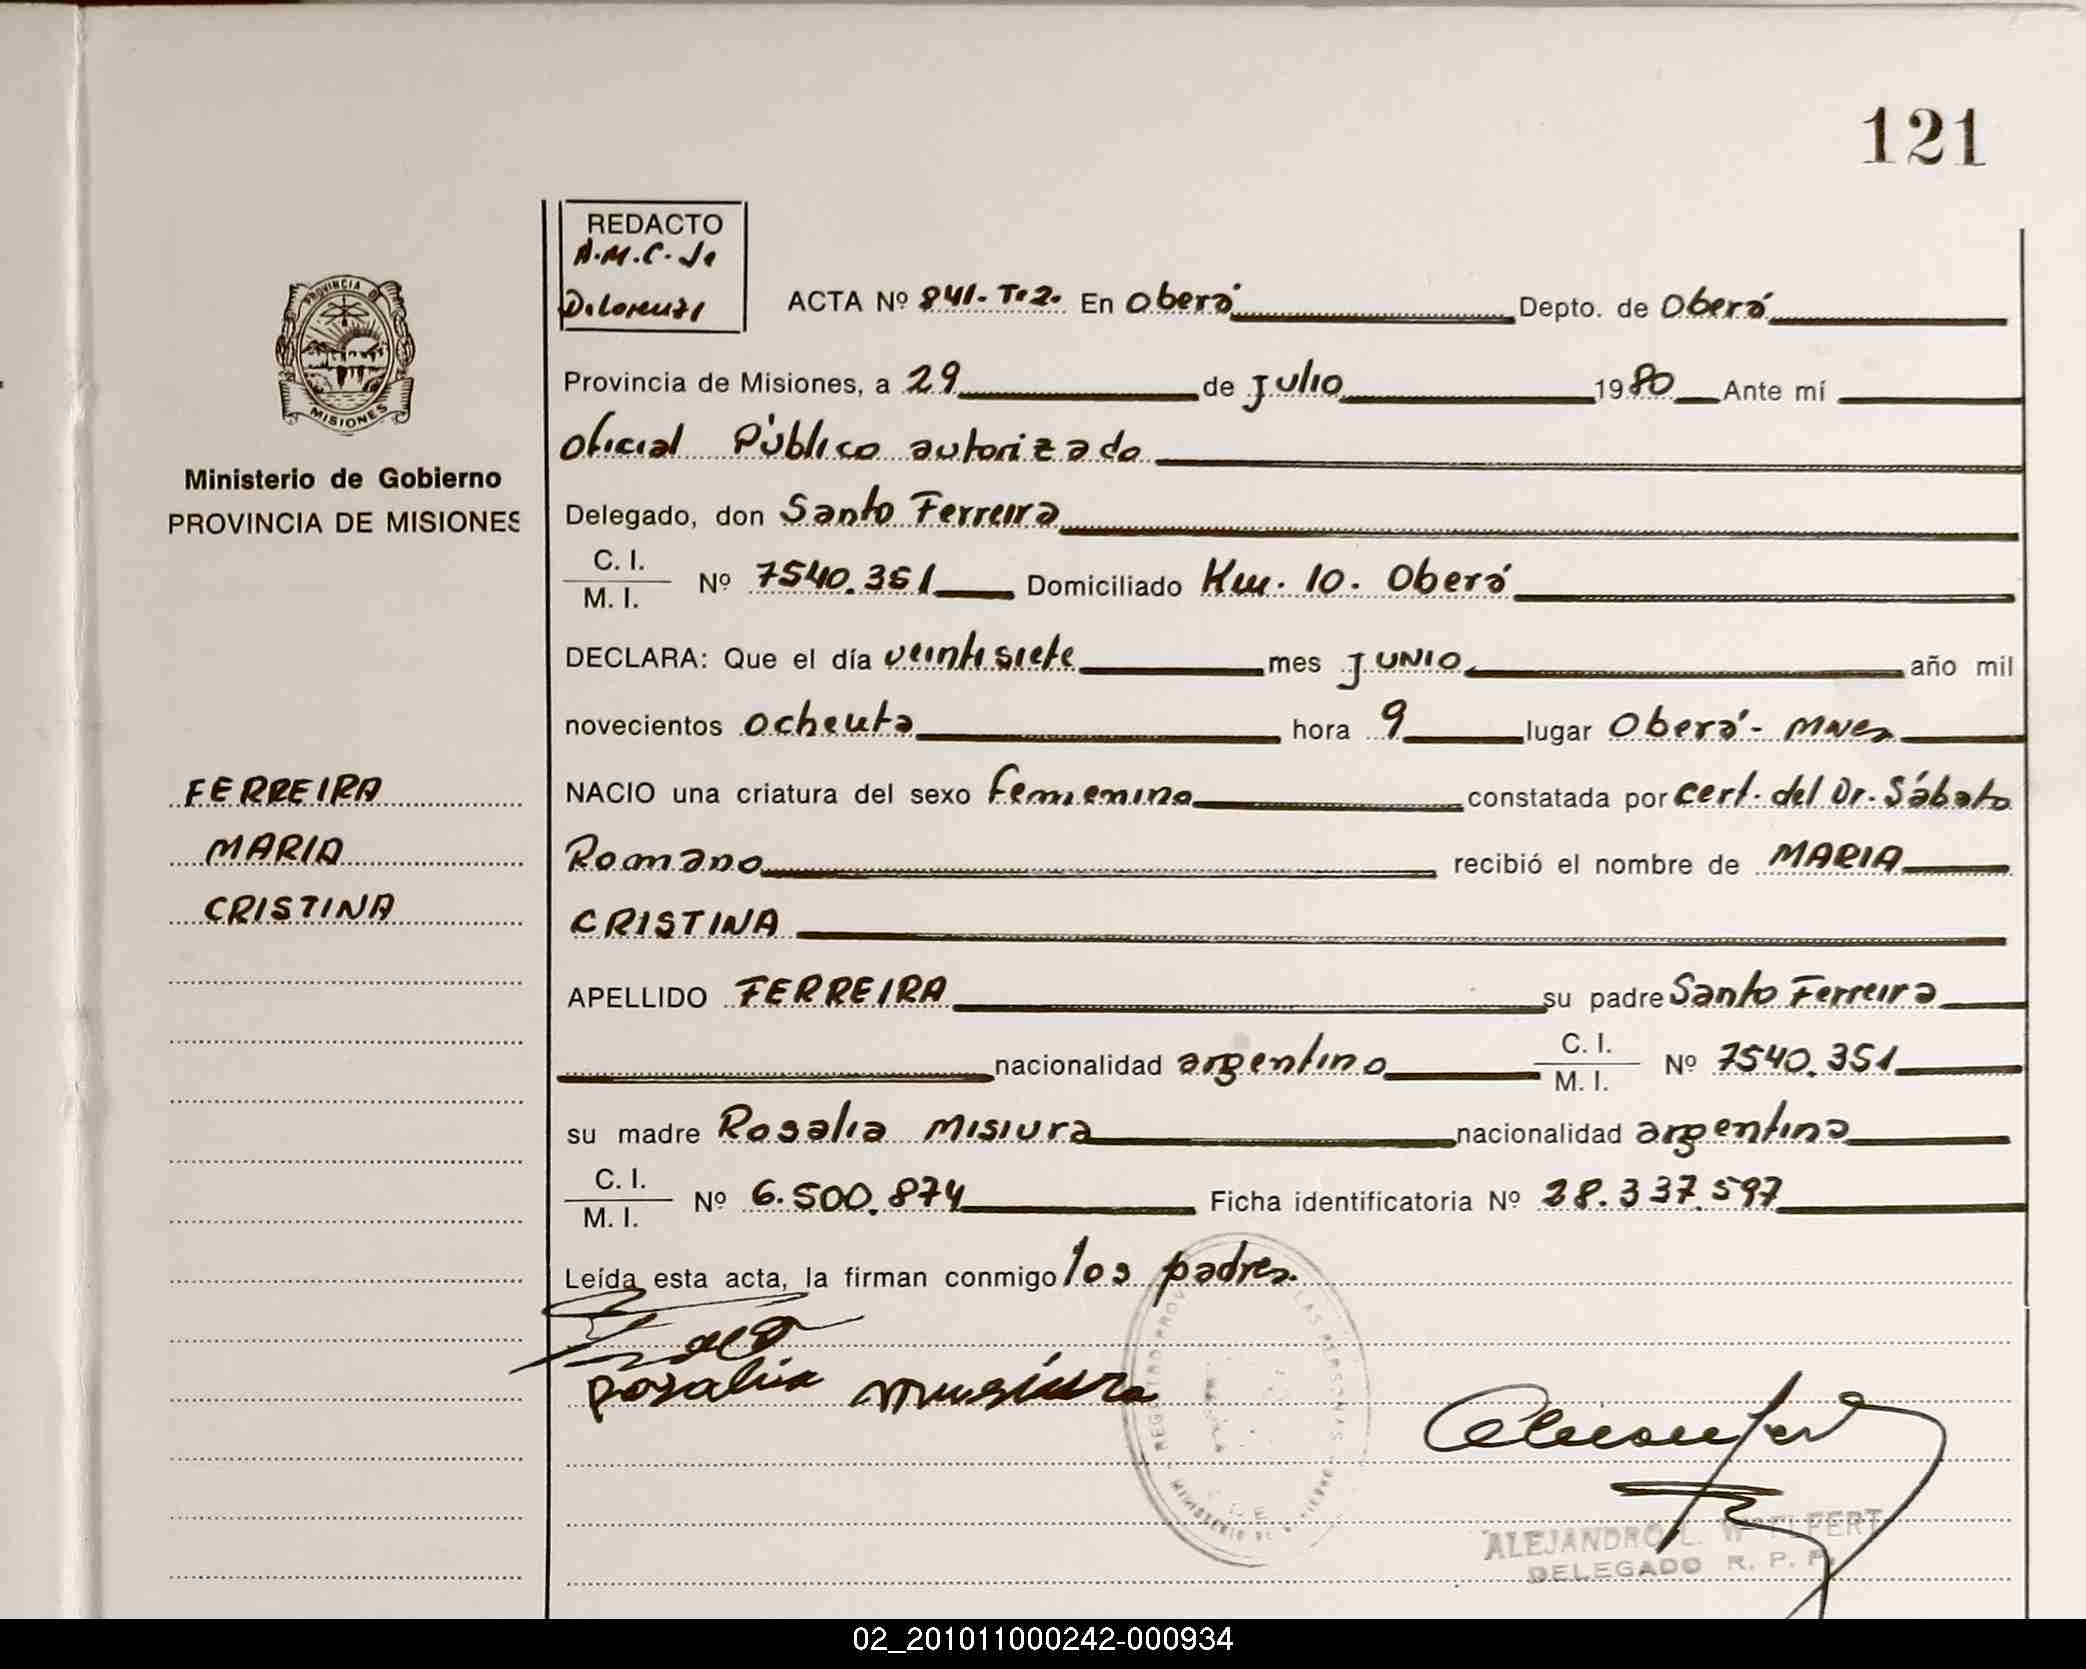 121
REDACTO
A.M.C. de
D.Lorenzi
ACTA Nº 841-Tº2. En Oberá Depto. de Oberá
Provincia de Misiones, a 29 de Julio 1980 Ante mí
oficial Público autorizado
Delegado, don Santo Ferreira
C. I.
M. I. Nº 7540.351 Domiciliado Km. 10. Oberá
DECLARA: Que el día veintisiete mes JUNIO año mil
novecientos ochenta hora 9 lugar Oberá - Mnes
NACIO una criatura del sexo femenino constatada por cert. del Dr. Sábato
Romano recibió el nombre de MARIA
CRISTINA
APELLIDO FERREIRA su padre Santo Ferreira
nacionalidad argentino C. I.
M. I. Nº 7540.351
su madre Rosalia Misiura nacionalidad argentina
C. I.
M. I. Nº 6.500.874 Ficha identificatoria Nº 28.337.597
Leída esta acta, la firman conmigo los padres.
Rosalia Musiura
ALEJANDRO L. WOELFERT
DELEGADO R. P. P.
PROVINCIA DE
MISIONES
Ministerio de Gobierno
PROVINCIA DE MISIONES
FERREIRA
MARIA
CRISTINA
02_201011000242-000934